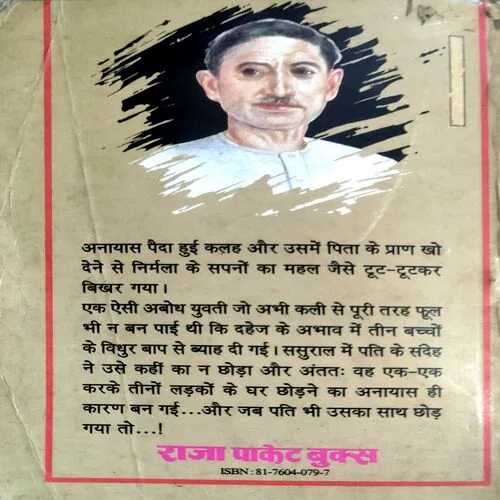 अनायास पैदा हुई कलह और उसमें पिता के प्राण खो
देने से निर्मला के सपनों का महल जैसे टूट-टूटकर
बिखर गया।
एक ऐसी अबोध युवती जो अभी कली से पूरी तरह फूल
भी न बन पाई थी कि दहेज के अभाव में तीन बच्चों
के विधुर बाप से ब्याह दी गई। ससुराल में पति के संदेह
ने उसे कहीं का न छोड़ा और अंततः वह एक-एक
करके तीनों लड़कों के घर छोड़ने का अनायास ही
कारण बन गई...और जब पति भी उसका साथ छोड़
गया तो...!
राजा पाकेट बुक्स
ISBN : 81-7604-079-7